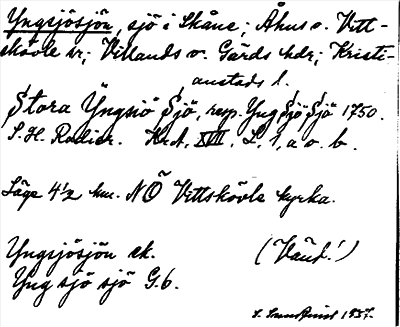 Yngsjösjön, sjö i Skåne; Åhus o. Vitt-
skövle sr; Villands o. Gärds hdr; Kristi-
anstads l.
Stora Yngsiö Sjö, resp. Yng Sjö Sjö 1750.
S. H. Rolier. Krt. XVII. L. 1, a o. b.
Läge 4½ km. NÖ Vittskövle kyrka.
Yngsjösjön ek. (Vänd!)
Yng sjö sjö G.6.
1937.